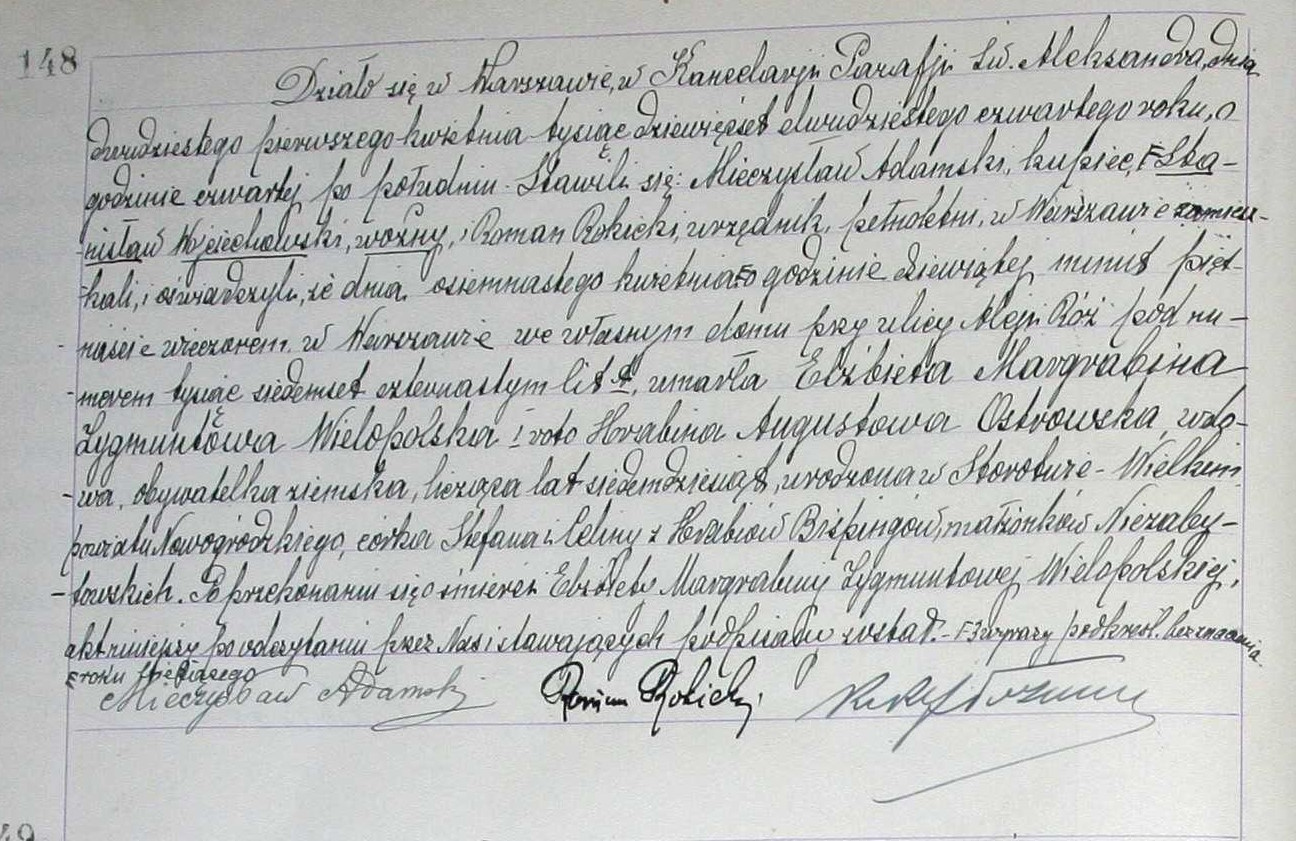 148
Działo się w Warszawie, w Kancelarji Parafji Św. Aleksandra, dnia
dwudziestego pierwszego kwietnia tysiąc dziewięćset dwudziestego czwartego roku, o
godzinie czwartej po południu. Stawili się: Mieczysław Adamski, kupiec, Sta-
-nisław Wojciechowski, woźny, i Roman Rokicki, urzędnik, pełnoletni, w Warszawie zamiesz-
-kali, i oświadczyli, że dnia osiemnastego kwietnia o godzinie dziewiątej minut pięt-
-naście wieczorem w Warszawie we własnym domu przy ulicy Aleji Róż pod nu-
-merem tysiąc siedemset czternastym lit A, umarła Elżbieta Margrabina
Zygmuntowa Wielopolska I voto Hrabina Augustowa Ostrowska, wdo-
-wa, obywatelka ziemska, licząca lat siedemdziesiąt, urodzona w Storotwie-Wielkim,
powiatu Nowogródzkiego, córka Stefana i Celiny z Hrabiów Bispingów, małżonków Niezaby-
-towskich. Po przekonaniu się o śmierci Elżbiety Margrabiny Zygmuntowej Wielopolskiej,
akt niniejszy po odczytaniu przez Nas i stawających podpisany został.- 3 wyrazy podkreśl. bez znaczenia
roku bieżącego
Mieczysław Adamski Roman Rokicki
49